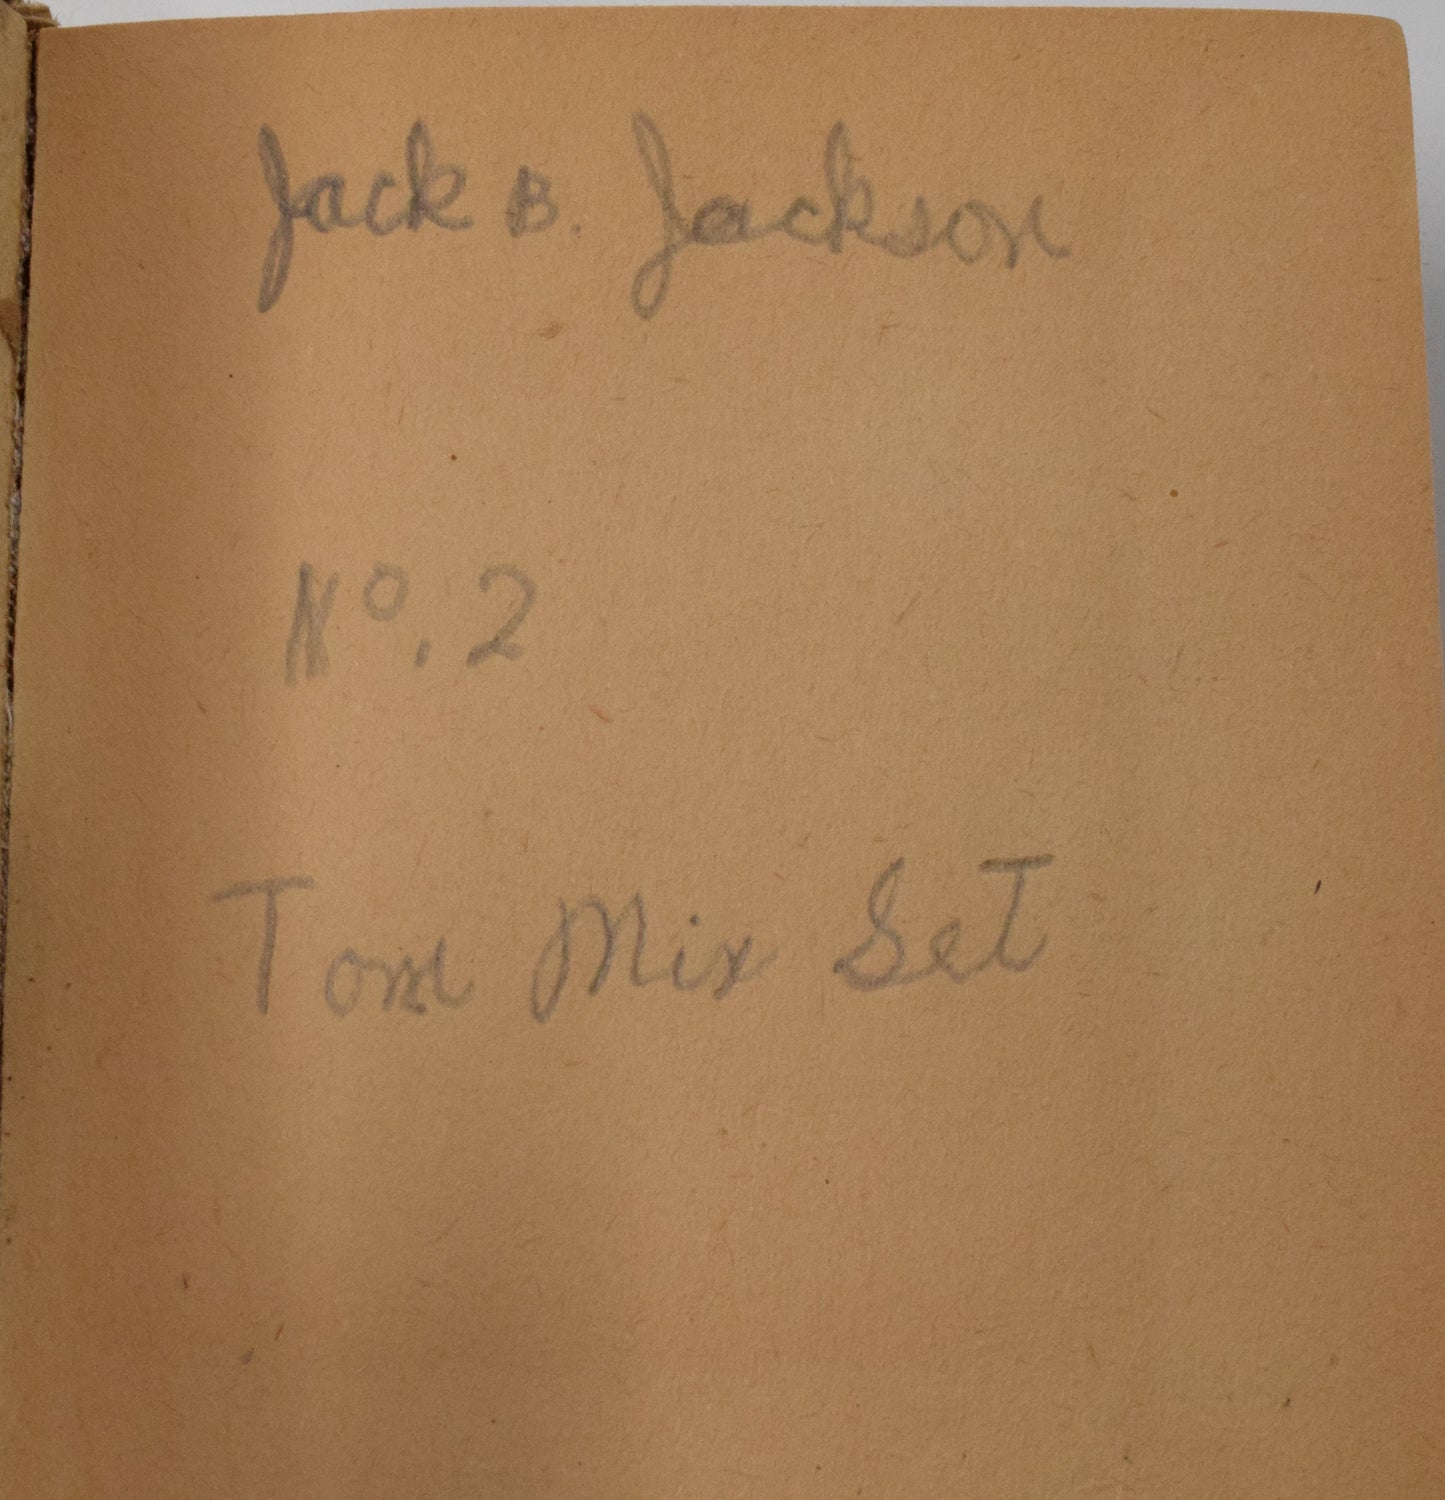 Jack B. Jackson
No. 2
Tom Mix Set